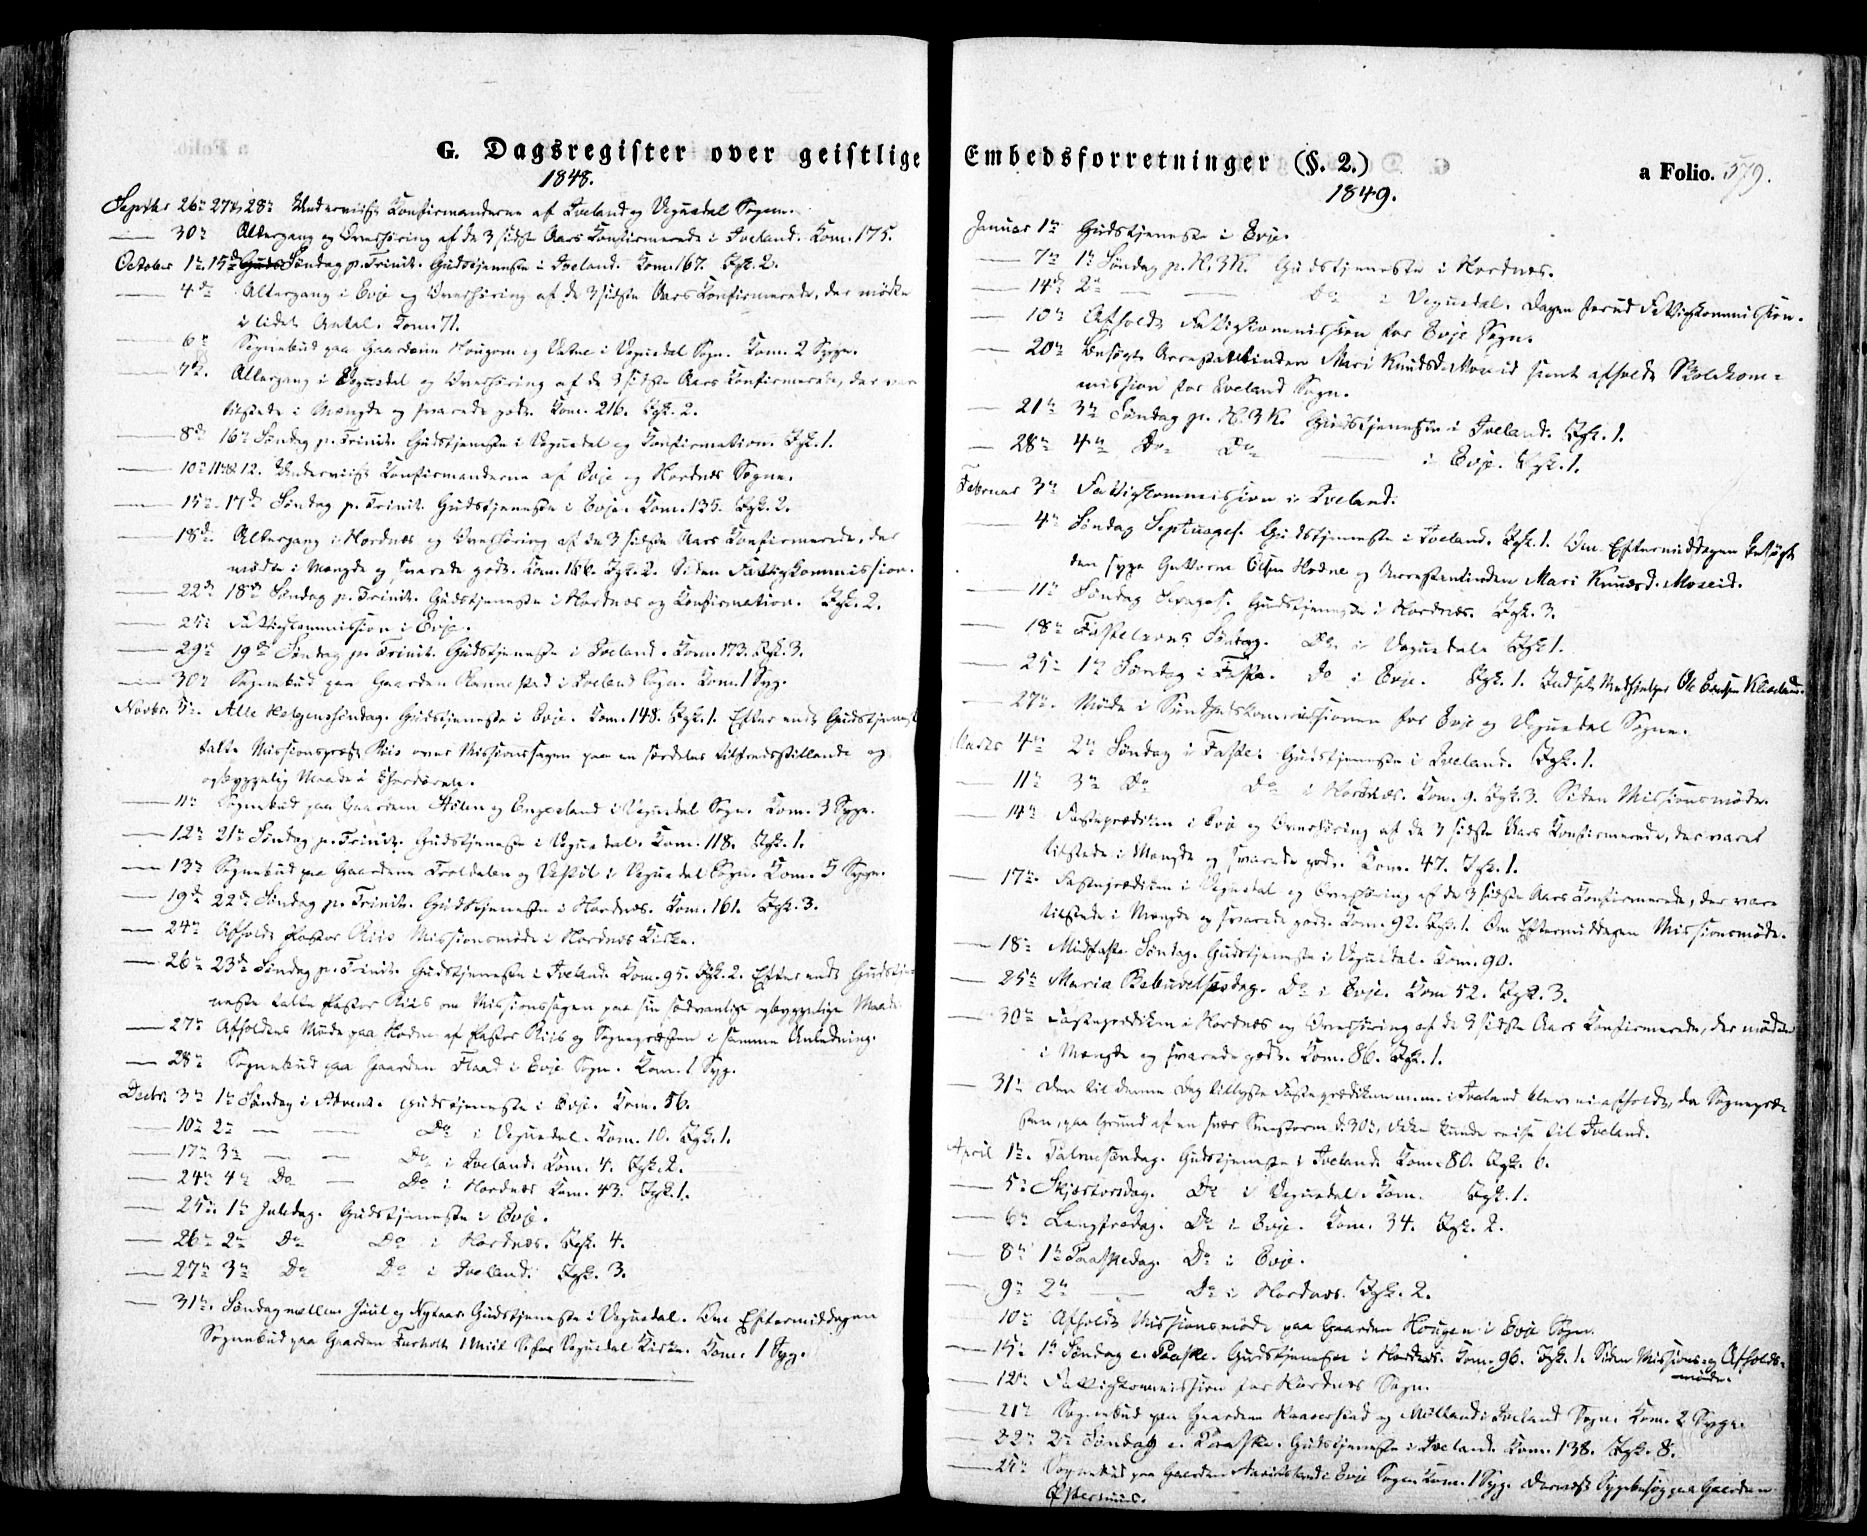 G. Dagsregister over geistlige
1848.
Septbr 26de 27de, 28de Underviist Konfirmanderne af Iveland og Veguedal Sogne.
— 30te Altergang og Overhøring af de 3 sidste Aars Konfirmerede i Iveland. Kom. 175.
October 1te 15de Søndag p. Trinit. Gudstjeneste i Iveland. Kom. 167. Igk. 2.
— 4de Altergang i Evje og Overhøring af de 3 sidste Aars Konfirmerede, der mødte
i lidet Antal. Kom. 71.
— 6te Sognebud paa Gaardene Hougom og i Veguedal Sogn. Kom. 2 Syge.
— 7de Altergang i Veguedal og Overhøring af de 3 sidste Aars Konfirmerede, der var
tilstede i Mængde og svarede godt. Kom. 216. Igk. 2.
— 8de 16de Søndag p. Trinit. Gudstjeneste i Veguedal og Konfirmation. Igk. 1.
— 10de 11te & 12. Underviist Konfirmanderne af Evje og Hordnes Sogne.
— 15de 17de Søndag p. Trinit. Gudstjeneste i Evje. Kom. 135. Igk. 2.
— 18de Altergang i Hordnes og Overhøring af de 3 sidste Aars Konfirmerede, der
mødte i Mængde og svarede godt. Kom. 166. Igk. 2. Siden Fattigkommission.
— 22de 18de Søndag p. Trinit. Gudstjeneste i Hordnes og Konfirmation. Igk. 2.
— 25de Fattigkommission i Evje.
— 29de 19de Søndag p. Trinit. Gudstjeneste i Iveland. Kom. 173. Igk. 3.
— 30te Sognebud paa Gaarden Rannestad i Iveland Sogn. Kom. 1 Syg.
Novbr. 5te Alle Helgenssøndag. Gudstjeneste i Evje. Kom. 148. Igk. 1. Efter endt Gudstjeneste
talte Missionspræst Riis over Missionssagen paa en særdeles tilfredsstillende og
opbyggelig Maade i
— 11te Sognebud paa Gaardene Aslen og Engeland i Veguedal Sogn. Kom. 3 Syge.
— 12te 21de Søndag p. Trinit. Gudstjeneste i Veguedal. Kom. 118. Igk. 1.
— 13de Sognebud paa Gaardene Troldalen og Uestøl i Veguedal Sogn. Kom. 5 Syge.
— 19de 22de Søndag p. Trinit. Gudstjeneste i Hordnes. Kom. 161. Igk. 3.
— 24de Afholdt Pastor Riis Missionsmøde i Hordnes Kirke.
— 26de 23de Søndag p. Trinit. Gudstjeneste i Iveland. Kom. 95. Igk. 2. Efter endt Gudstje-
neste talte Pastor Riis om Missionssagen paa sin sædvanlige opbyggelige Maade.
— 27de Afholdtes Møde paa Hodne af Pastor Riis og Sognepræsten i samme Anledning.
— 28de Sognebud paa Gaarden Flaad i Evje Sogn. Kom. 1 Syg.
Decbr. 3de 1te Søndag i Advent. Gudstjeneste i Evje. Kom. 56.
— 10de 2de — — Do i Veguedal. Kom. 10. Igk. 1.
— 17de 3de — — Do i Iveland. Kom. 4. Igk. 2.
— 24de 4de Do — Do i Hordnes Kom. 43. Igk. 1.
— 25de 1te Juledag. Gudstjeneste i Evje.
— 26de 2de Do Do i Hordnes. Igk. 4.
— 27de 3de Do Do i Iveland. Igk. 3.
— 31te Søndag mellem Juul og Nytaar Gudstjeneste i Veguedal. Om Eftermiddagen
Sognebud paa Gaarden Furholt 1 Miil Veguedal Kirke. Kom. 1 Syg.
Embedsforretninger (§. 2.)
a Folio. 579.
1849.
Januar 1te Gudstjeneste i Evje.
— 7de 1te Søndag p. H. 3 K. Gudstjeneste i Hordnes.
— 14de 2de — — Do i Veguedal. Dagen forud Fattigkommission.
— 10de Afholdt Fattigkommission for Evje Sogn.
— 20de Besøgte Arrestantinden Mari Knudsd. Moseid samt afholdt Skolekom-
mission for Iveland Sogn.
— 21de 3de Søndag p. H. 3 K. Gudstjeneste i Iveland. Igk. 1.
— 28de 4de Do Do — i Evje. Igk. 1.
Februar 3de Fattigkommission i Iveland.
— 4de Søndag Septuages. Gudstjeneste i Iveland. Igk. 1. Om Eftermiddagen besøgt
den syge Guttorm Olsen Hodne og Arrestantinden Mari Knudsd. Moseid.
— 11te Søndag Sexages. Gudstjeneste i Hordnes. Igk. 3.
— 18de Fastelavns Søndag. Do i Veguedal. Igk. 1.
— 25de 1te Søndag i Faste. Do i Evje. Igk. 1. Indsat Medhjelper Ole Evensen
— 27de Møde i Sundhedskommissionen for Evje og Veguedal Sogne.
Marts 4de 2de Søndag i Faste. Gudstjeneste i Iveland. Igk. 1.
— 11te 3de Do Do i Hordnes. Kom. 9. Igk. 3. Siden Missionsmøde.
— 14de Fasteprædiken i Evje og Overhøring af de 3 sidste Aars Konfirmerede, der varet
tilstede i Mængde og svarede godt. Kom. 47. Igk. 1.
— 17de Fasteprædiken i Veguedal og Overhøring af de 3 sidste Aars Konfirmerede, der vare
tilstede i Mængde og svarede godt. Kom. 92. Igk. 1. Om Eftermiddagen Missionsmøde.
— 18de Midfaste Søndag. Gudstjeneste i Veguedal. Kom. 90.
— 25de Maria Bebudelsesdag. Do i Evje. Kom 52. Igk. 3.
— 30te Fasteprædiken i Hordnes og Overhøring af de 3 sidste Aars Konfirmerede, der mødte
i Mængde og svarede godt. Kom. 86. Igk. 1.
— 31te Den til denne Dag tillyste Fasteprædiken m.m. i Iveland blev ei afholdt, da Sognepræ-
sten, paa Grund af en svær Sneestorm d. 30te, ikke kunde reise til Iveland.
April 1te Palmesøndag. Gudstjeneste i Iveland. Kom. 80. Igk. 6.
— 5te Skjærtorsdag. Do i Veguedal. Kom. Igk. 1.
— 6te Langfredag. Do i Evje. Kom. 34. Igk. 2.
— 8de 1te Paaskedag. Do i Evje.
— 9de 2de — Do i Hordnes. Igk. 2.
— 10de Afholdt Missionsmøde paa Gaarden Hougen i Evje Sogn.
— 15de 1te Søndag e. Paaske. Gudstjeneste i Hordnes. Kom. 96. Igk. 1. Siden Missions- og Afholds-
møde.
— 12te Fattigkommission for Hordnes Sogn.
— 21de Sognebud paa Gaardene Kaaverstad og Mølland i Iveland Sogn. Kom. 2 Syge.
— 22de 2de Søndag e. Paaske. Gudstjeneste i Iveland. Kom. 138. Igk. 8.
— Sognebud paa Gaarden i Evje Sogn Kom. 1 Syg. Dernæst Sygebesøg paa Gaarden